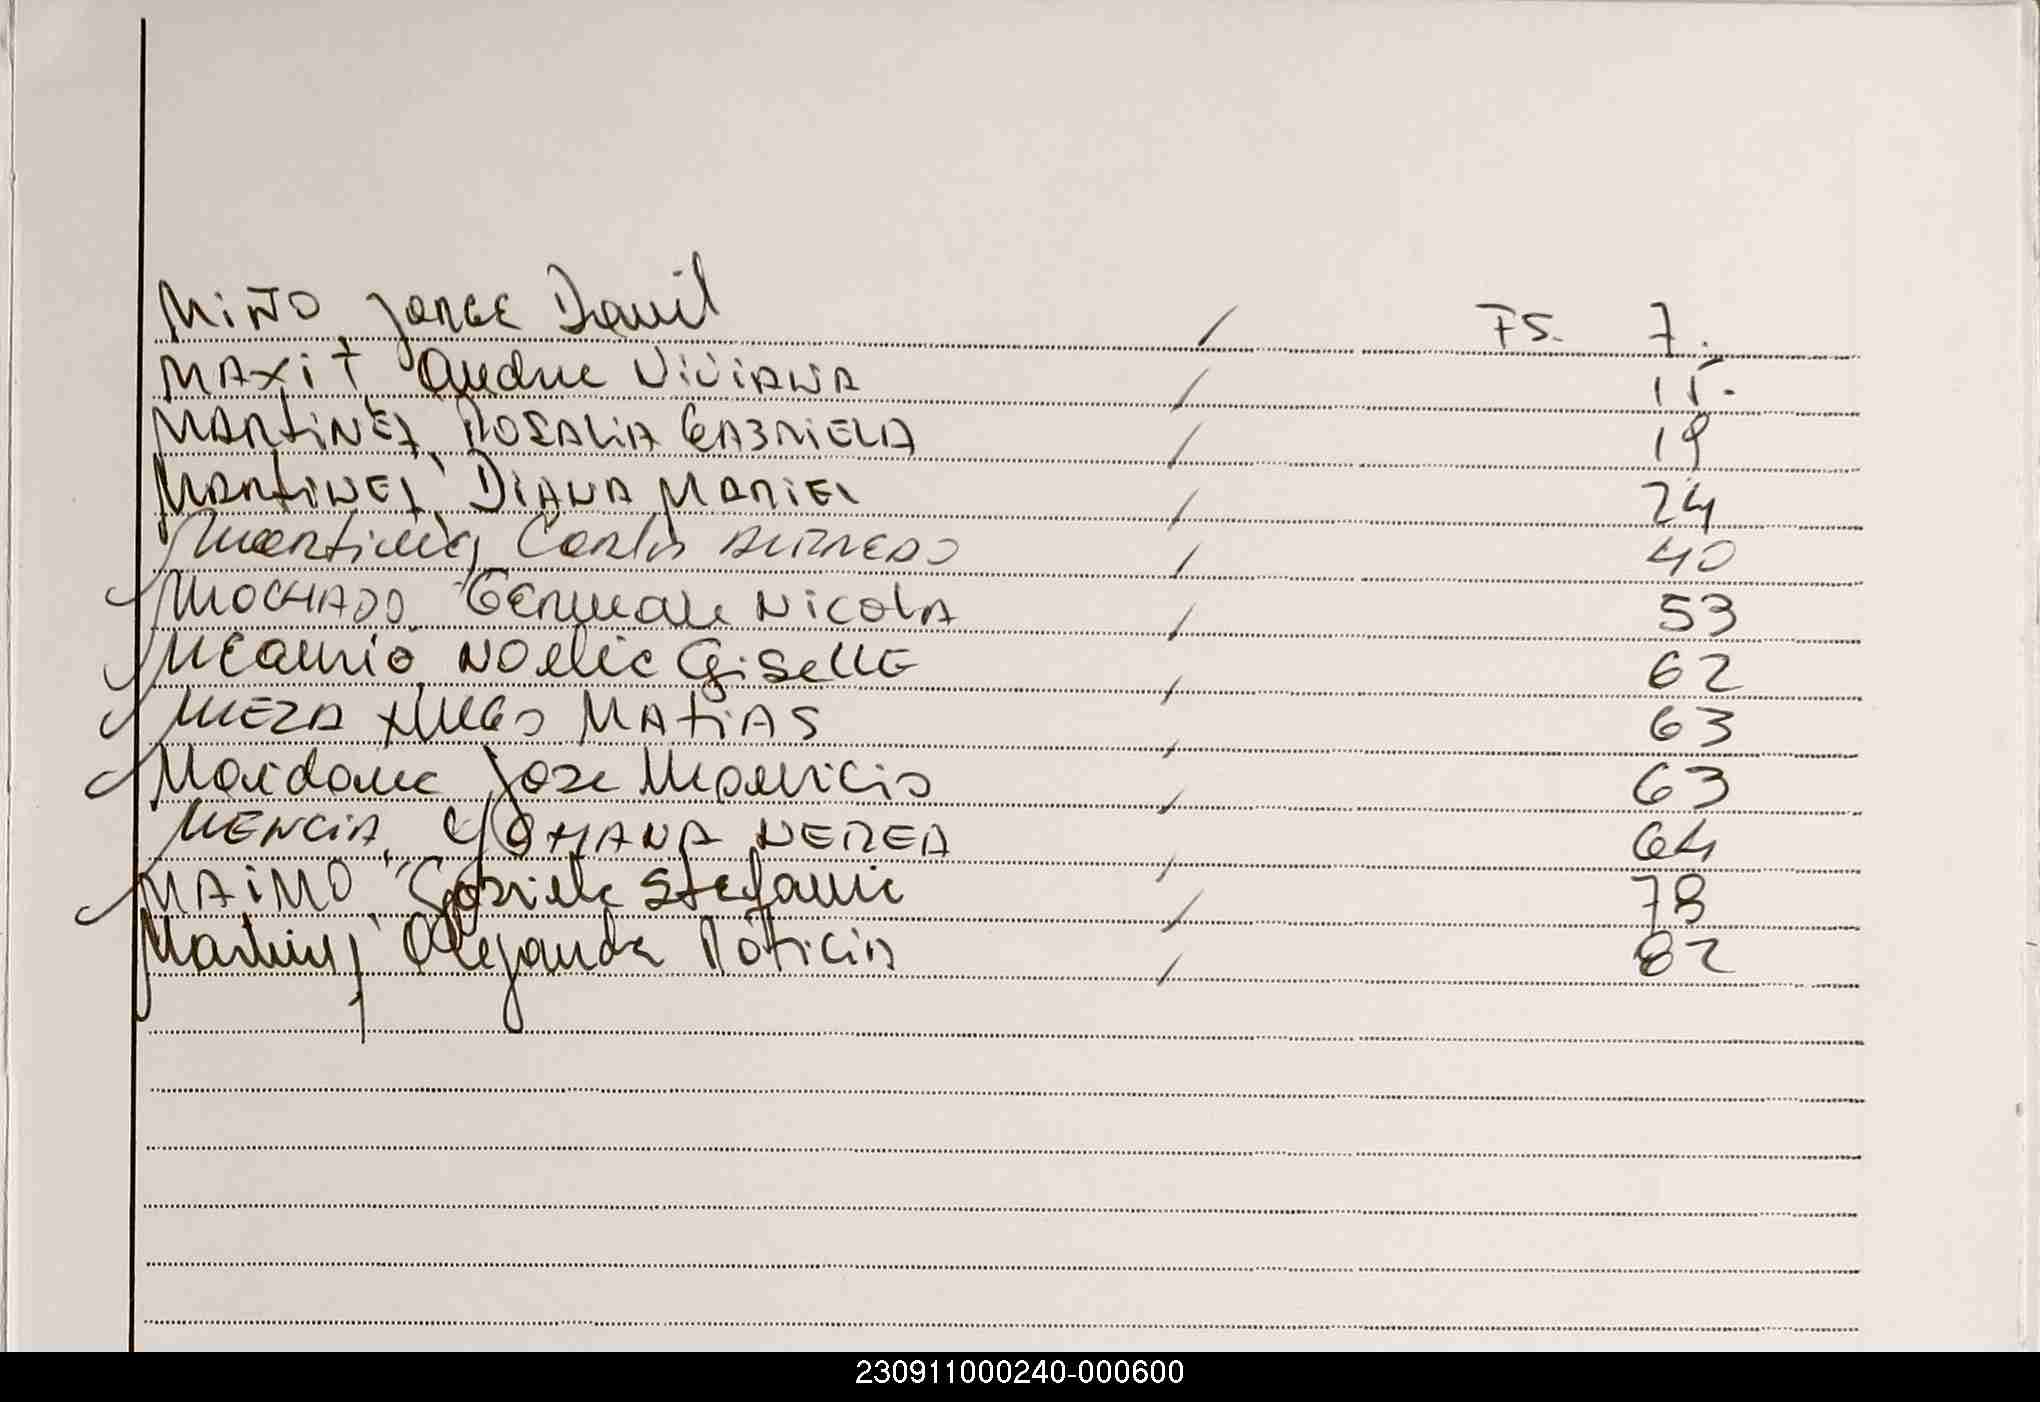 MIÑO, Jorge David / FS. 7.
MAXIT Andrea VIVIANA / 15.
MARTINEZ, ROSALIA GABRIELA / 19
MARTINEZ, DIANA MARIEL / 24
Martinez, Carlos ALFREDO / 40
MACHADO, German NICOLA / 53
Noelia GISELLE / 62
MEZA, HUGO MATIAS / 63
Maidana Jose Mauricio / 63
MENCIA, YOHANA NEREA / 64
MAIMO, Gabriela Stefania / 78
Martinez, Alejandra PATRICIA / 82
230911000240-000600